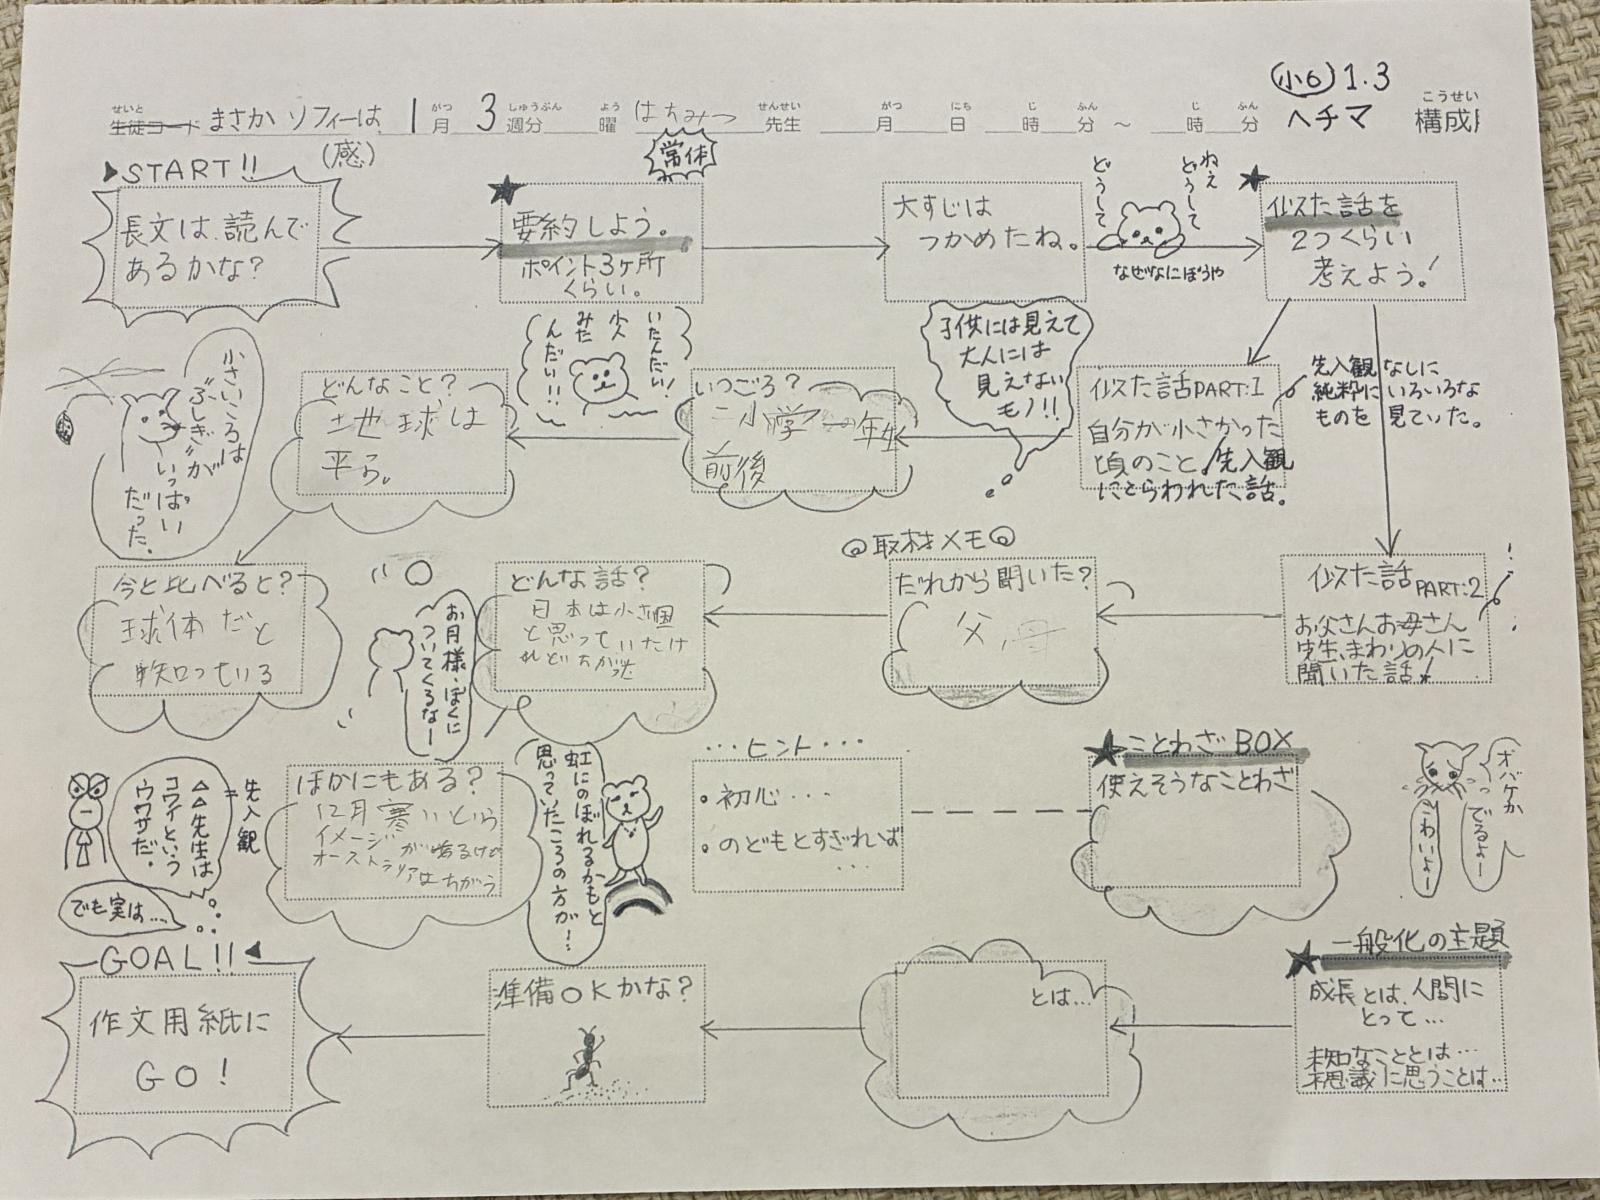 小6 1.3
せいと がつ しゅうぶん よう せんせい がつ にち じ ふん じ ふん こうせい
生徒コード まさか ソフィーは 1月 3週分 曜 はちみつ 先生 月 日 時 分 ~ 時 分 ヘチマ 構成
(感)
▶START!!
長文は、読んで
あるかな?
常体
★要約しよう。
ポイント3ヶ所
くらい。
大すじは
つかめたね。
ねえ
どうして
どうして
なぜなにぼうや
★似た話を
2つくらい
考えよう!
似た話PART:1
自分が小さかった
頃のこと/先入観
にとらわれた話。
先入観なしに
純粋にいろいろな
ものを見ていた。
子供には見えて
大人には
見えない
モノ!!
いつごろ?
小学一年生
前後
いたんだい!
小人
みた
んだい!!
どんなこと?
地球は
平ら。
小さいころは
"ふしぎ"が
いっぱい
だった。
今と比べると?
球体だと
知っている
似た話PART:2
お父さんお母さん
先生、まわりの人に
聞いた話!
◎取材メモ◎
だれから聞いた?
父、母
どんな話?
日本は小さい国
と思っていたけ
れどちがう
お月様、ぼくに
ついてくるなー
ほかにもある?
12月寒いという
イメージがあるけど
オーストラリアはちがう
虹にのぼれるかもと
思っていたころの方が…
=先入観
△△先生は
コワイという
ウワサだ。
でも実は…
・・・ヒント・・・
・初心・・・
・のどもとすぎれば
・・・
★ことわざBOX
使えそうなことわざ
オバケか
でるよー
こわいよー
★一般化の主題
成長とは、人間に
とって…
未知なこととは…
不思議に思うことは…
とは…
準備OKかな?
GOAL!!◀
作文用紙に
GO!